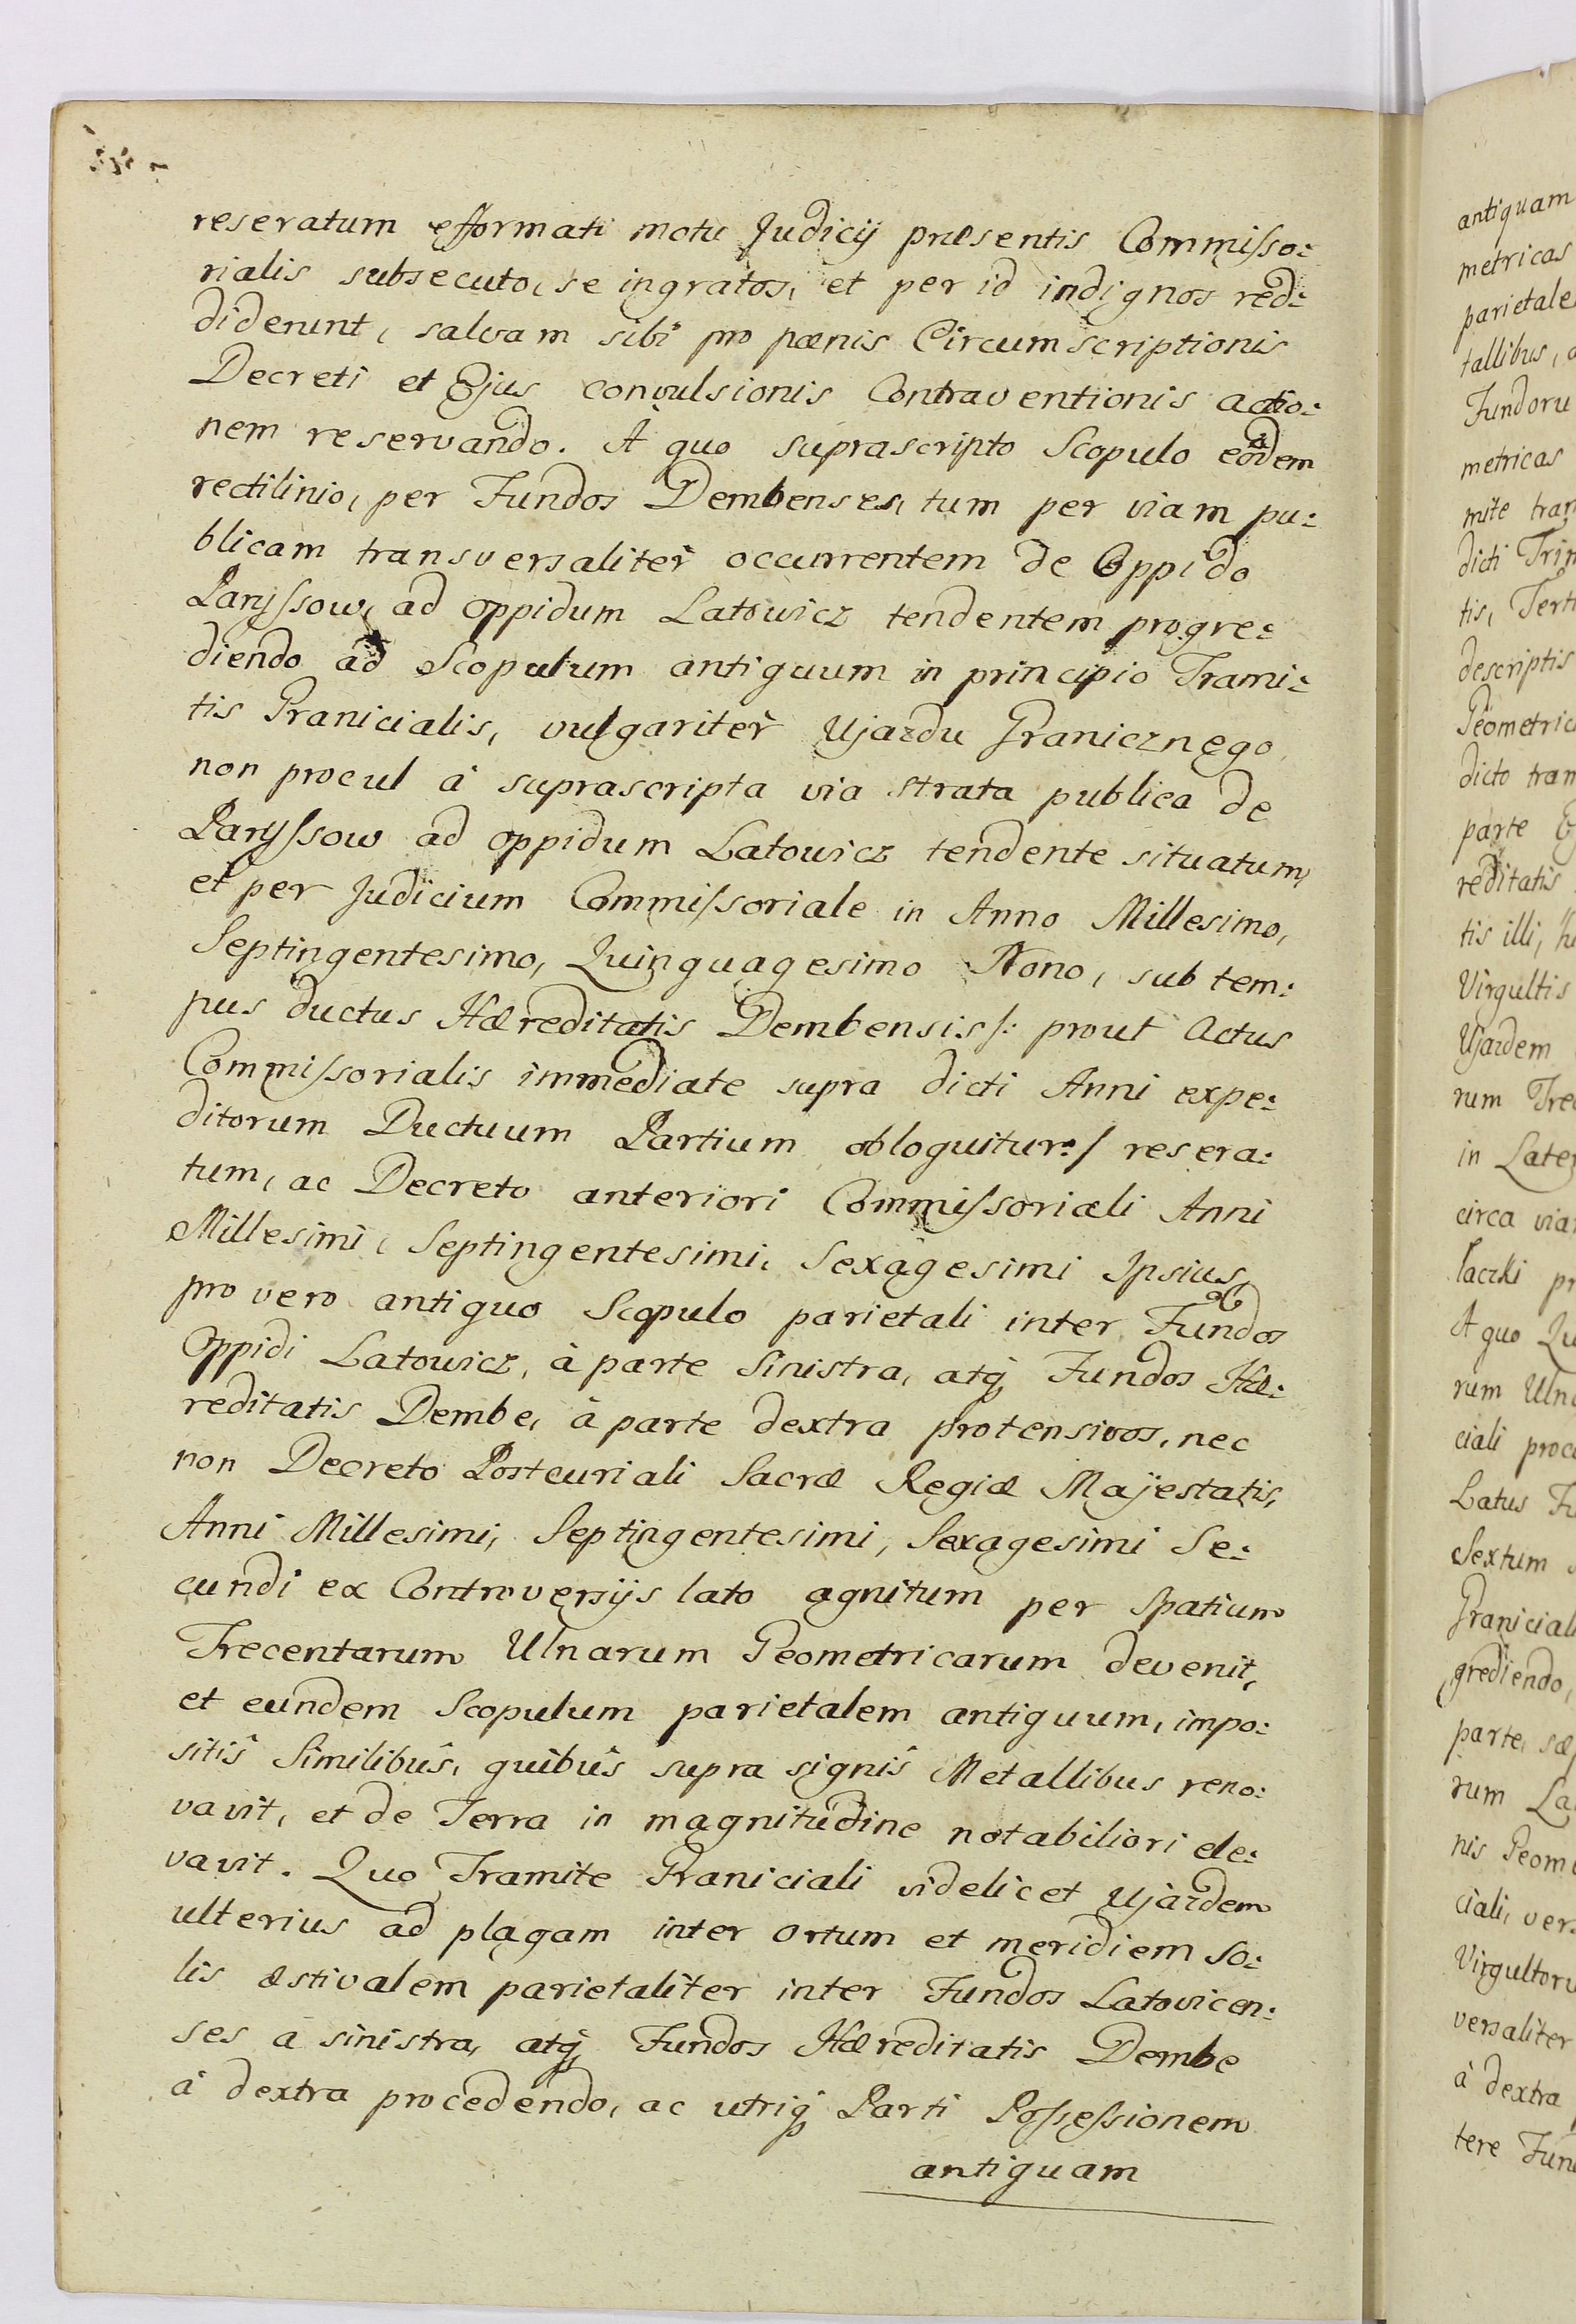 reseratum efformati motu Judicij præsentis Commisso:
rialis subsecuto, se ingratos, et per id indignos red:
diderunt, salvam sibi pro pœnis Circumscriptionis
Decreti et Ejus convulsionis Contraventionis actio:
nem reservando. A quo suprascripto Scopulo eodem
rectilinio, per Fundos Dembenses, tum per viam pu:
blicam transversalitèr occurrentem de Oppido
Paryssow, ad oppidum Latowicz tendentem progre:
diendo ad Scopulum antiquum in principio Trami:
tis Granicialis, vulgaritèr Ujazdu Granicznego
non procul à suprascripta via strata publica de
Paryssow ad oppidum Latowicz tendente situatum,
et per Judicium Commissoriale in Anno Millesimo,
Septingentesimo, Quinquagesimo Nono, sub tem:
pus ductus Hæreditatis Dembensis /: prout Actus
Commissorialis immediate supra dicti Anni expe:
ditorum Ductuum Partium obloquitur :/ resera:
tum, ac Decreto anteriori Commissoriali Anni
Millesimi, Septingentesimi, Sexagesimi Ipsius
pro vero antiquo Scopulo parietali inter Fundos
Oppidi Latowicz, à parte Sinistra, atq; Fundos Hæ:
reditatis Dembe, à parte dextra protensivos, nec
non Decreto Postcuriali Sacræ Regiæ Majestatis,
Anni Millesimi, Septingentesimi, Sexagesimi Se:
cundi ex Controversijs lato agnitum per Spatium
Trecentarum Ulnarum Geometricarum devenit,
et eundem Scopulum parietalem antiquum, impo:
sitîs Similibûs, quibûs supra signîs Metallibus reno:
vavit, et de Terra in magnitudine notabiliori ele:
vavit. Quo Tramite Graniciali videlicet Ujazdem
ulterius ad plagam inter ortum et meridiem So:
lis æstivalem parietaliter inter Fundos Latovicen:
ses a sinistra, atq; Fundos Hæreditatis Dembe
à dextra procedendo, ac utriq; Parti Possessionem
antiquam
antiquam
metricas
parietale
tallibus,
Fundoru
metricas
mite tran
dicti
tis,
descriptis
Geometric
dicto tram
parte
reditatis
tis illi,
Virgultis
Ujazdem
rum Tre
in Later
circa via
A quo
rum Uln
ciali proc
Latus
Sextum
Granicial
grediendo,
parte,
rum
nis Geom
ciali, ver
Virgultoru
versaliter
à dextra
tere Fun